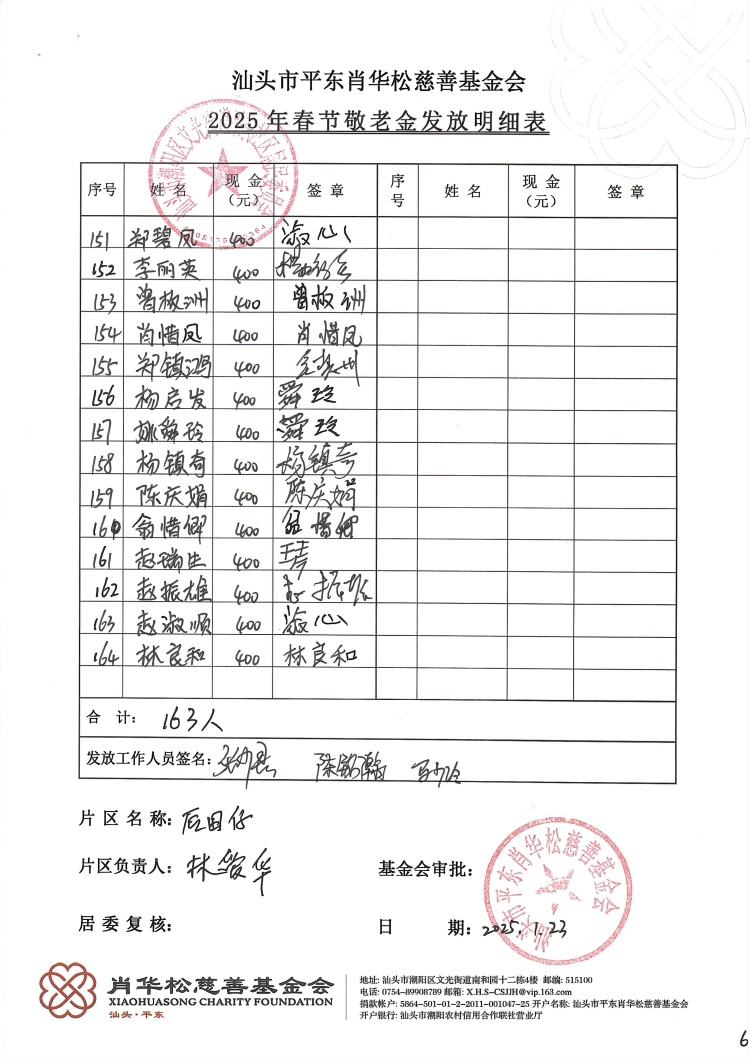 汕头市平东肖华松慈善基金会
2025年春节敬老金发放明细表
序号 姓名 现金（元） 签章 序号 姓名 现金（元） 签章
151 郑碧凤 400 淑心
152 李丽英 400
153 曾板洲 400 曾板洲
154 肖惜凤 400 肖惜凤
155 郑镇鸿 400
156 杨启发 400 舜玲
157 姚舜玲 400 舜玲
158 杨镇奇 400 杨镇奇
159 陈庆娟 400 陈庆娟
160 翁惜卿 400 翁惜卿
161 赵瑞生 400
162 赵振雄 400
163 赵淑顺 400 淑心
164 林良和 400 林良和
合 计： 163人
发放工作人员签名：
片区名称：后田仔
片区负责人：
基金会审批：
居委复核：
日 期：2025.1.23
汕头市平东肖华松慈善基金会
肖华松慈善基金会
XIAOHUASONG CHARITY FOUNDATION
汕头·平东
地址: 汕头市潮阳区文光街道南和园十二栋4楼 邮编: 515100
电话: 0754-89908789 邮箱: X.H.S-CSJJH@vip.163.com
捐款帐户: 5864-501-01-2-2011-001047-25 开户名称: 汕头市平东肖华松慈善基金会
开户银行: 汕头市潮阳农村信用合作联社营业厅
6